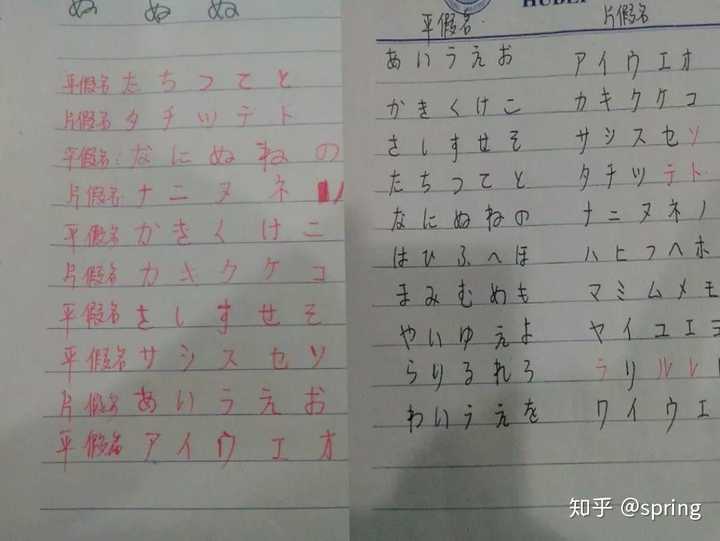 ぬ ぬ ぬ
平假名 た ち つ て と
片假名 タ チ ツ テ ト
平假名: な に ぬ ね の
片假名 ナ ニ ヌ ネ ノ
平假名 か き く け こ
片假名 カ キ ク ケ コ
平假名 さ し す せ そ
平假名 サ シ ス セ ソ
片假名 あ い う え お
平假名 ア イ ウ エ オ
平假名 片假名
あ い う え お ア イ ウ エ オ
か き く け こ カ キ ク ケ コ
さ し す せ そ サ シ ス セ ソ
た ち つ て と タ チ ツ テ ト
な に ぬ ね の ナ ニ ヌ ネ ノ
は ひ ふ へ ほ ハ ヒ フ ヘ ホ
ま み む め も マ ミ ム メ モ
や い ゆ え よ ヤ イ ユ エ ヨ
ら り る れ ろ ラ リ ル レ
わ い う え を ワ イ ウ エ
知乎 @spring